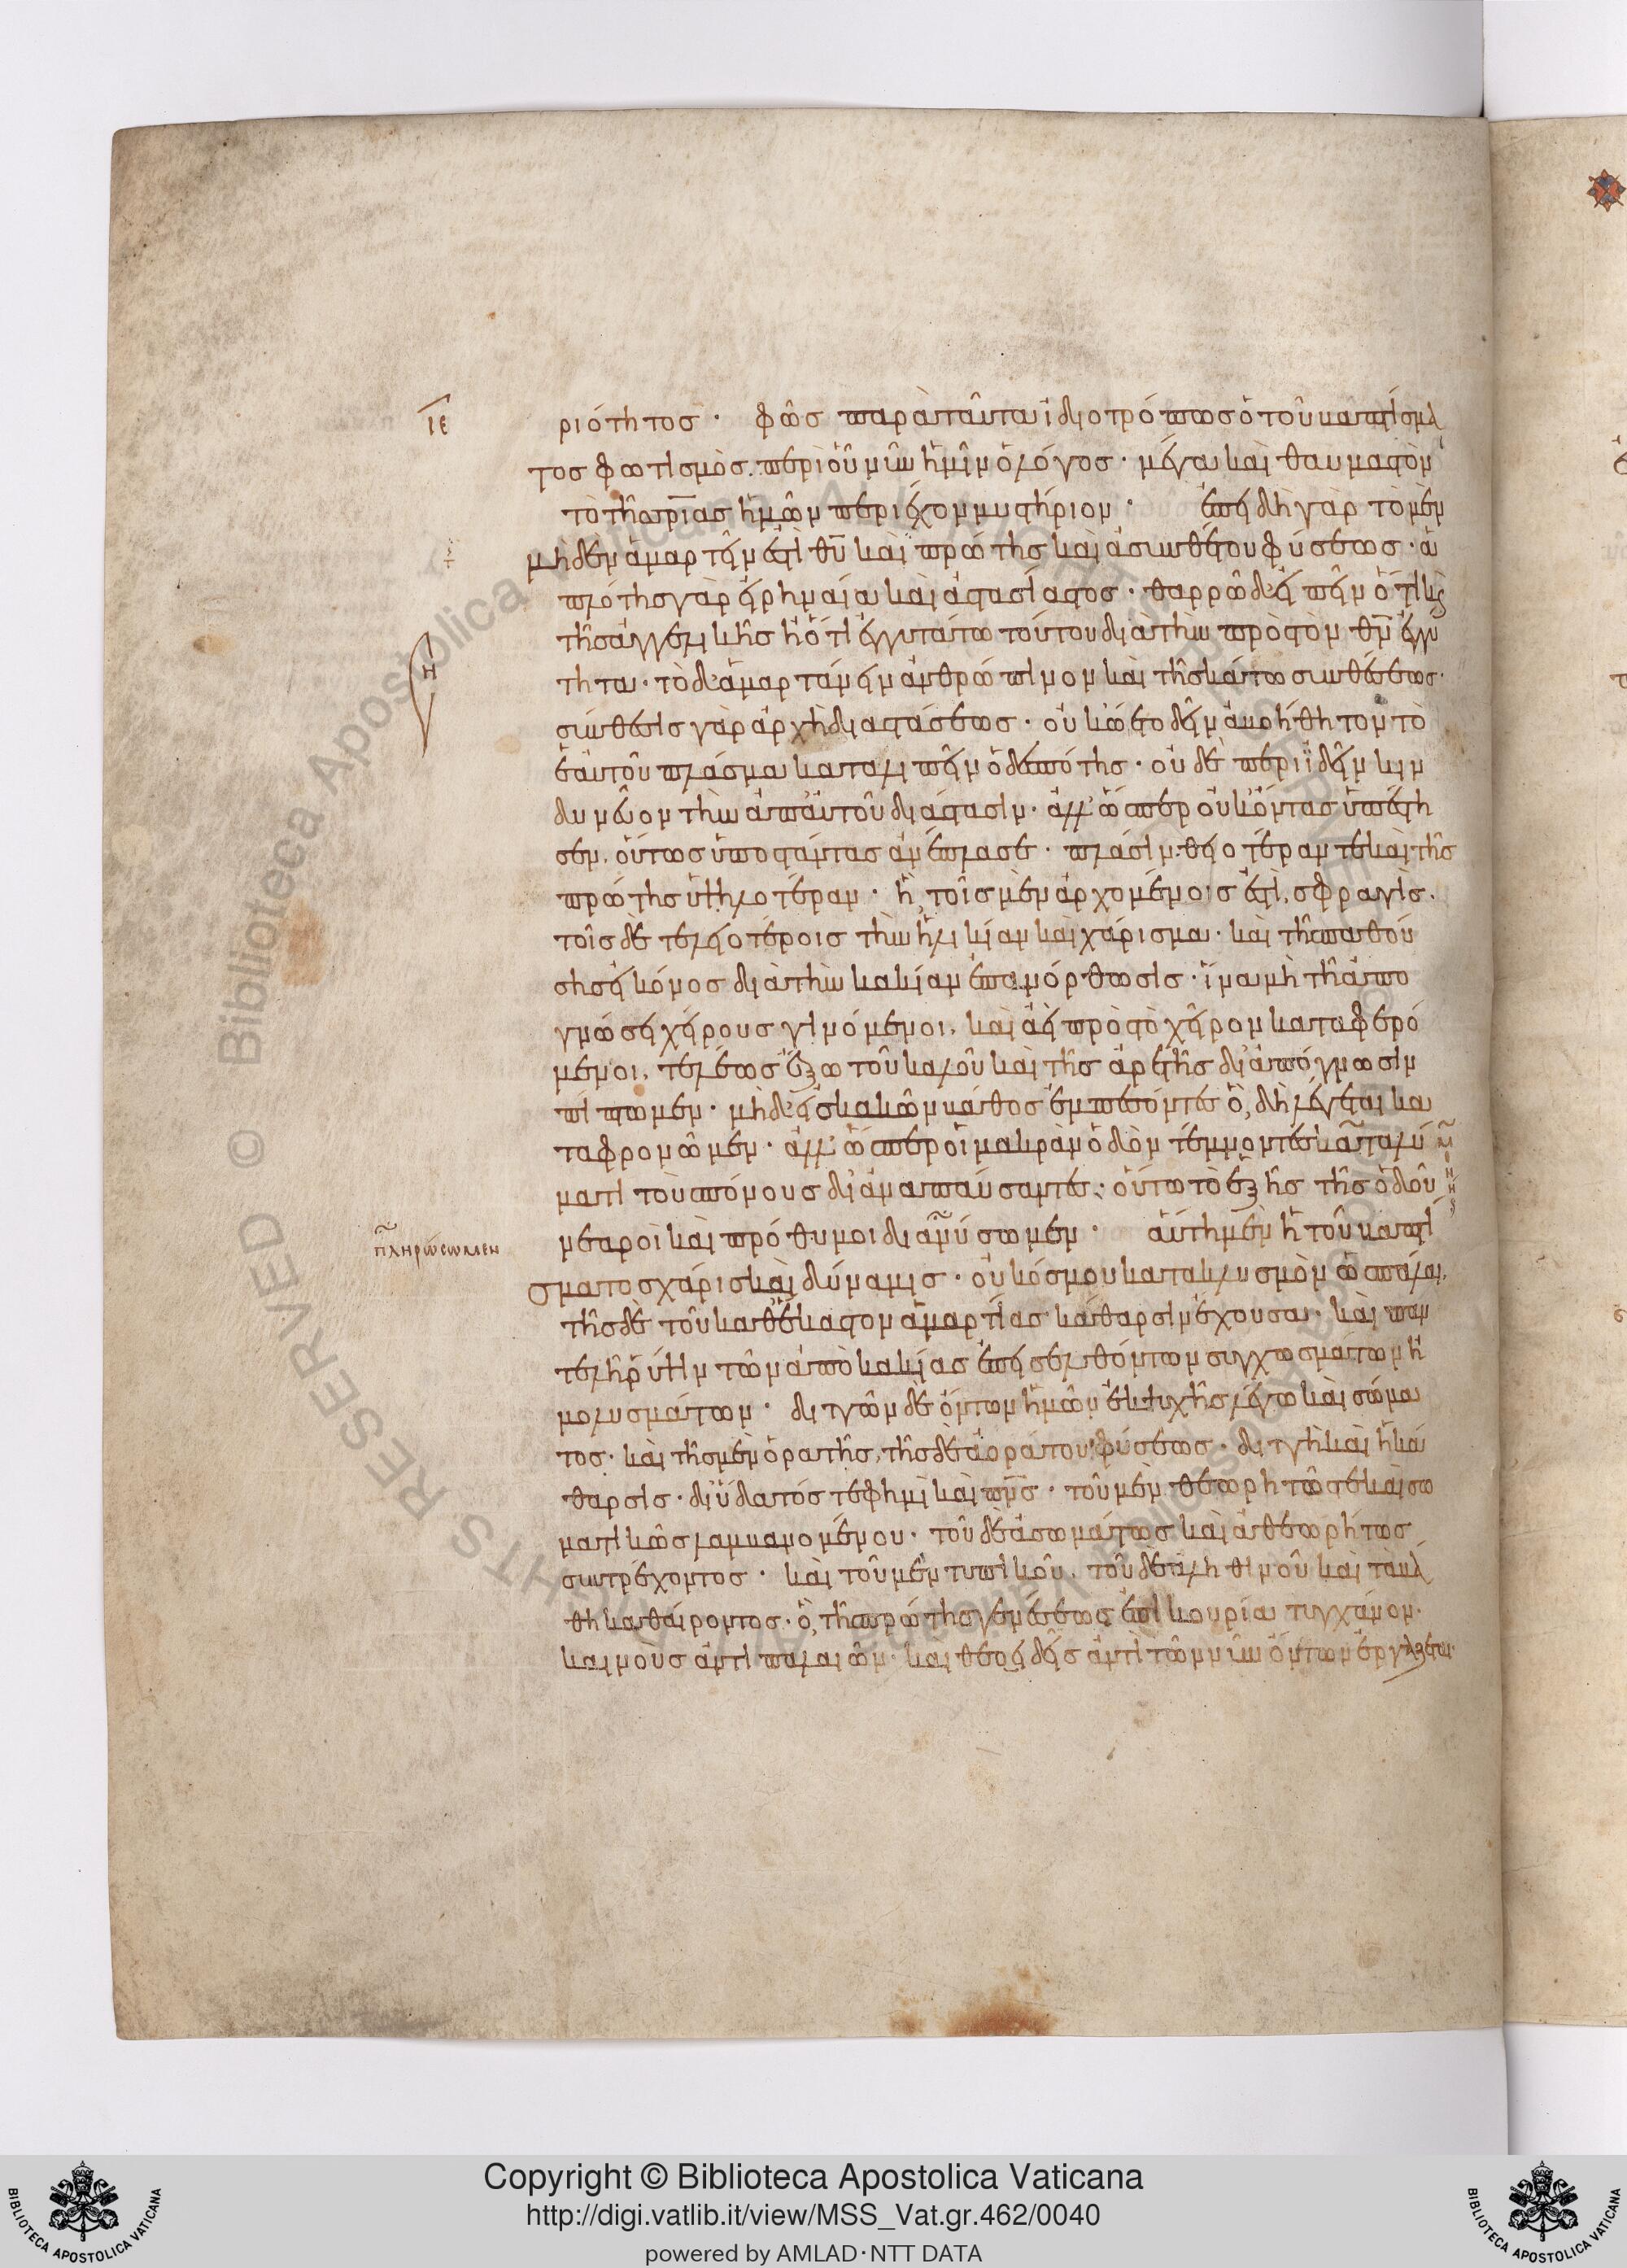 ιε
ριότητος · φῶς παρὰ ταῦτα ἰδιοτρόπως ὁ τοῦ βαπτίσμα
τος φωτισμὸς. περὶ οὗ νῦν ἡμῖν ὁ λόγος · μέγα καὶ θαυμαστὸν
τὸ τῆς σρίας ἡμῶν περιέχον μυστήριον · ἐπειδὴ γὰρ τὸ μὲν
μηδὲν ἁμαρτεῖν ἐστὶ θυ καὶ πρώτης καὶ ἀσυνθέτου φύσεως · ἁ
πλότης γὰρ εἰρηναία καὶ ἀστασίαστος · θαρρῶ δὲ εἰπεῖν ὅτι καὶ
τῆς ἀγγελικῆς ἢ ὅτι ἐγγυτάτω τούτου διὰ τὴν πρὸς τὸν θν ἐγγύ
τητα · τὸ δὲ ἁμαρτάνειν ἀνθρώπινον καὶ τῆς κάτω συνθέσεως ·
σύνθεσις γὰρ ἀρχὴ διαστάσεως · οὐκ ᾤετο δεῖν ἀβοήθητον τὸ
ἑαυτοῦ πλάσμα καταλιπεῖν ὁ δεσπότης · οὐδὲ περιϊδεῖν κιν
δυνεῦον τὴν ἀπ' αὐτοῦ διάστασιν · ἀλλ' ὥσπερ οὐκ ὄντας ὑπέστη
σεν, οὕτως ὑποστάντας ἀνέπλασε · πλάσιν θειοτέραν τε καὶ τῆς
πρώτης ὑψηλοτέραν · ἣ, τοῖς μὲν ἀρχομένοις ἐστὶ, σφραγὶς.
τοῖς δὲ τελειοτέροις τὴν ἡλικίαν καὶ χάρισμα · καὶ τῆς πεσού
σης εἰκόνος διὰ τὴν κακίαν ἐπανόρθωσις · ἵνα μὴ τῆ ἀπο
γνώσει χείρους γινόμενοι, καὶ ἀεὶ πρὸς τὸ χεῖρον καταφερό
μενοι, τελέως ἔξω τοῦ καλοῦ καὶ τῆς ἀρετῆς δι' ἀπόγνωσιν
πίπτωμεν · μὴ δὲ εἰς κακῶν βάθος ἐμπεσόντες ὃ, δὴ λέγεται κα
ταφρονῶμεν · ἀλλ' ὥσπερ οἱ μακρὰν ὁδὸν τέμνοντες καταλύ
ματι τοὺς πόνους διαναπαύσαντες, οὕτω τὸ ἑξῆς τῆς ὁδοῦ
πληρώσωμεν
νεαροὶ καὶ πρόθυμοι διανύσωμεν · αὕτη μὲν ἡ τοῦ βαπτί
σματος χάρις καὶ δύναμις · οὐ κόσμου κατακλυσμὸν ὡς πάλαι,
τῆς δὲ τοῦ καθ' ἕκαστον ἁμαρτίας κάθαρσιν ἔχουσα · καὶ παν
τελῆ ῥύψιν τῶν ἀπὸ κακίας ἐπεισελθόντων συγχωσμάτων ἢ
μολυσμάτων · διττῶν δὲ ὄντων ἡμῶν ἐκ ψυχῆς λέγω καὶ σώμα
τος · καὶ τῆς μὲν ὁρατῆς, τῆς δὲ ἀοράτου φύσεως · διττὴ καὶ ἡ κά
θαρσις · δι' ὕδατός τέ φημι καὶ πνς · τοῦ μὲν θεωρητῶς τε καὶ σω
ματικῶς λαμβανομένου · τοῦ δὲ ἀσωμάτως καὶ ἀθεωρήτως
συντρέχοντος · καὶ τοῦ μὲν τυπικοῦ, τοῦ δὲ ἀληθινοῦ καὶ τὰ βά
θη καθαίροντος · ὃ, τῆ πρώτης γενέσεως ἐπικουρία τυγχάνον,
καινοὺς ἀντὶ παλαιῶν · καὶ θεοειδεῖς ἀντὶ τῶν νῦν ὄντων ἐργάζεται ·
BIBLIOTECA APOSTOLICA VATICANA
Copyright © Biblioteca Apostolica Vaticana
http://digi.vatlib.it/view/MSS_Vat.gr.462/0040
powered by AMLAD·NTT DATA
BIBLIOTECA APOSTOLICA VATICANA